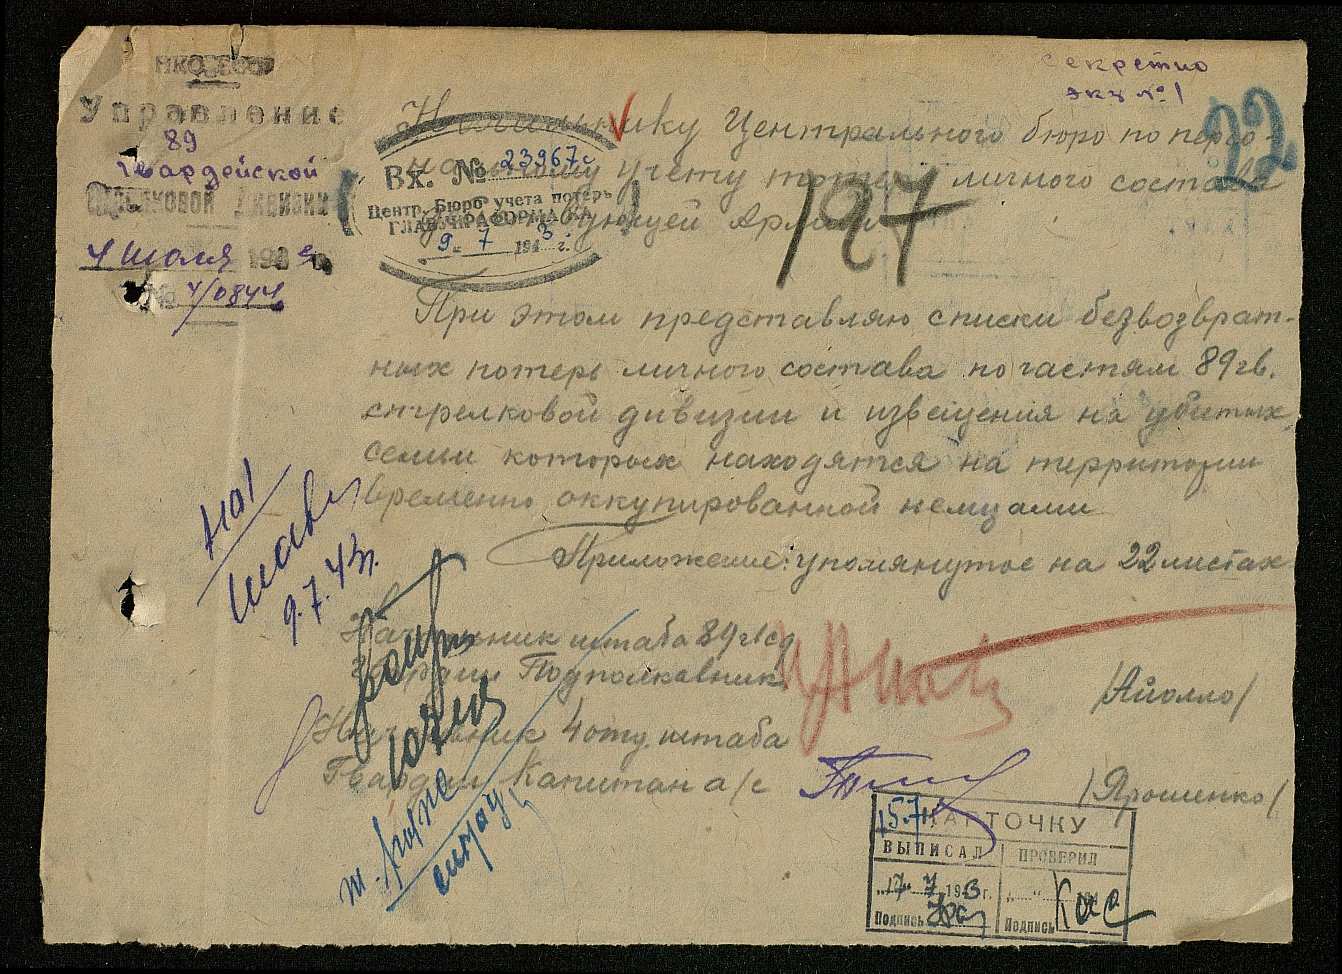 НКО СССР
Управление
89
гвардейской
Стрелковой Дивизии
4 июля 194 г.
№ 4/0844
Секретно
экз №1
22
Начальнику Центрального бюро по персо-
нальному учету потерь личного состава
Действующей Армии
Вх. № 23967
Центр. Бюро учета потерь
ГЛАВУПРАФОРМА КА
9 - 7 1943 г.
197
При этом представляю списки безвозврат-
ных потерь личного состава по частям 89 гв.
стрелковой дивизии и извещения на убитых,
семьи которых находятся на территории
временно оккупированной немцами
Приложение: упомянутое на 22 листах
9.7.43г.
Начальник штаба 89 гвсд
Гвардии Подполковник /Айолло/
Начальник 4 отд. штаба
Гвардии Капитан а/с /Ярошенко/
15.7
КАРТОЧКУ
ВЫПИСАЛ ПРОВЕРИЛ
"17" 7 1943г. "__" 194
Подпись Подпись